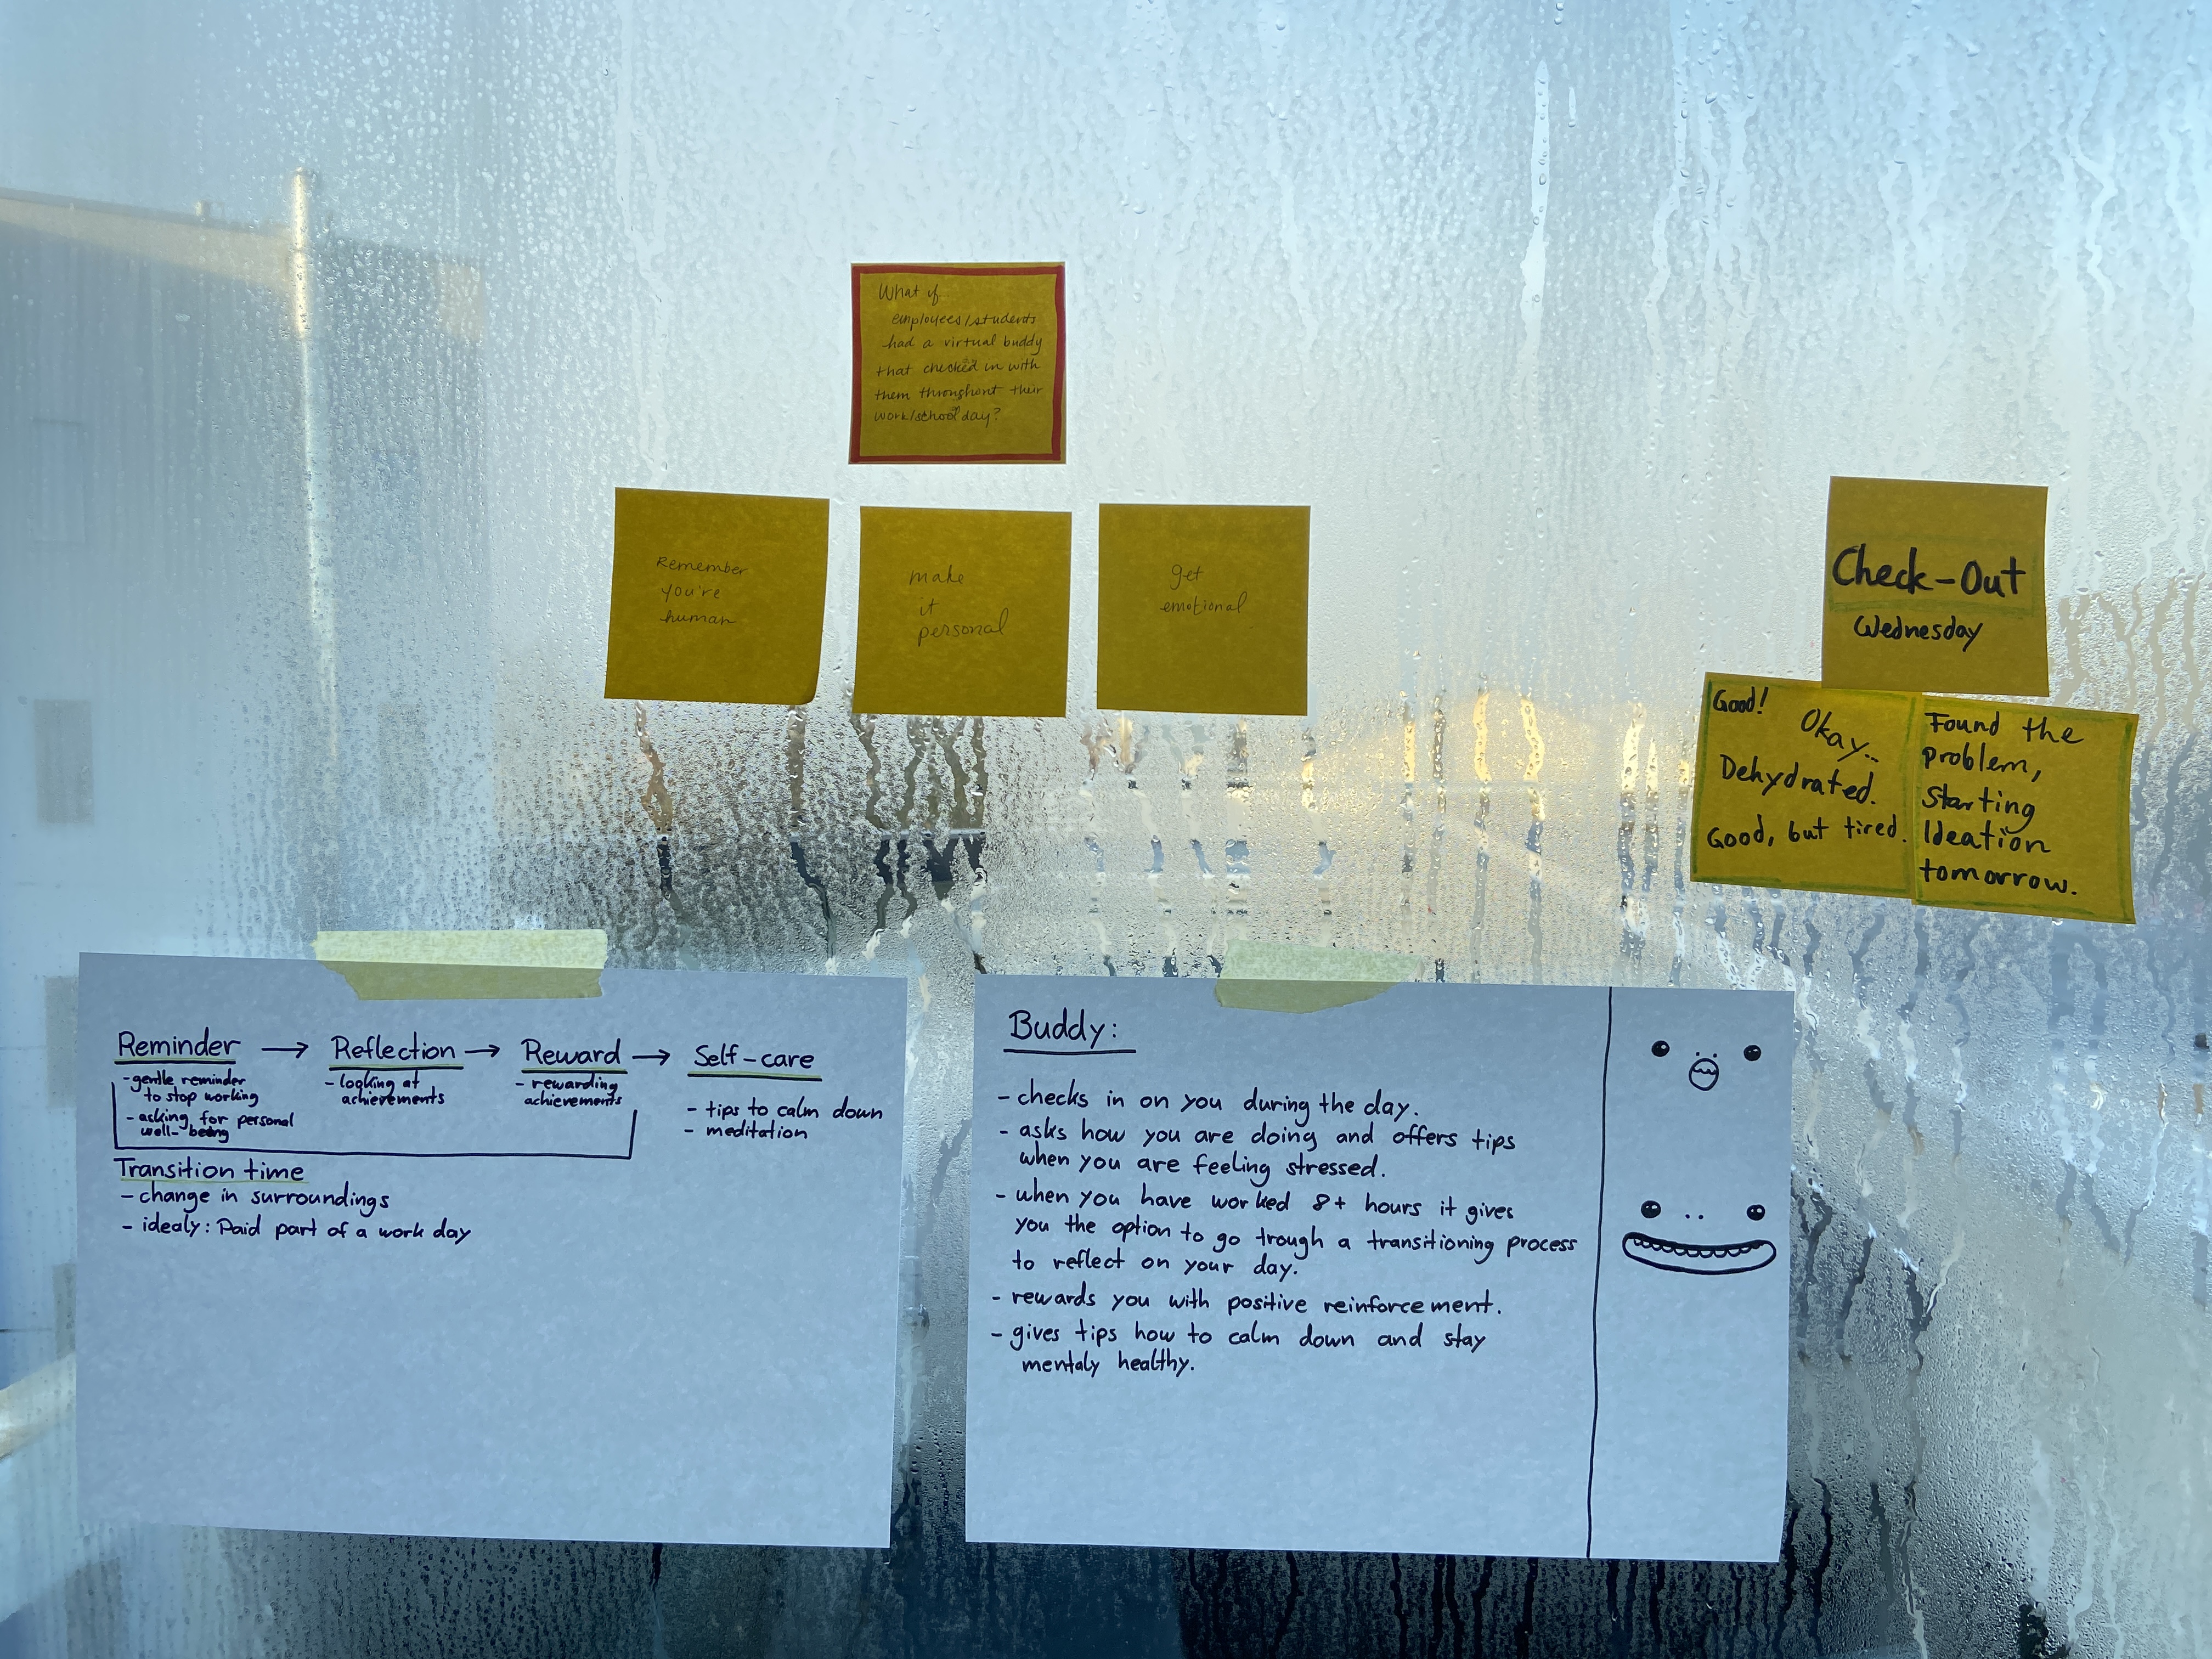 What if
employees/students
had a virtual buddy
that checked in with
them throughout their
work/school day?
Remember
you're
human
make
it
personal
get
emotional
Check-Out
Wednesday
Good!
Okay..
Dehydrated.
Good, but tired.
Found the
problem,
starting
Ideation
tomorrow.
Reminder → Reflection → Reward → Self-care
- gentle reminder
to stop working
- asking for personal
well-being
- looking at
achievements
- rewarding
achievements
- tips to calm down
- meditation
Transition time
- change in surroundings
- idealy: Paid part of a work day
Buddy:
- checks in on you during the day.
- asks how you are doing and offers tips
when you are feeling stressed.
- when you have worked 8+ hours it gives
you the option to go trough a transitioning process
to reflect on your day.
- rewards you with positive reinforcement.
- gives tips how to calm down and stay
mentaly healthy.